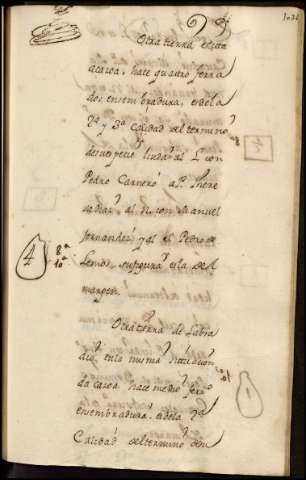 Otra tierra, el sitio
acasoa, haze quatro ferra
dos ensembradura, es de la
2ª y 3ª calidad del termino
de su especie linda al L con
Pedro Carnero al P. There
sa diaz al N. con Manuel
fernandez y al S. Pedro de
Lemos, su figura es la del
margen.
4
8ª
10ª
Otra tierra de Labra
dio en la misma
da casoa haze medio ferro
ensembradura. es de la 2ª
Calidad del termino de su
1